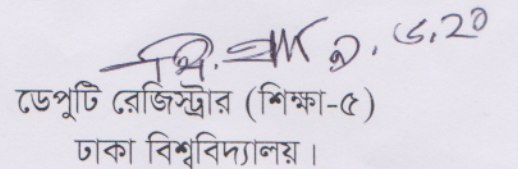 ৯.৬.২০
ডেপুটি রেজিস্ট্রার (শিক্ষা-৫)
ঢাকা বিশ্ববিদ্যালয়।